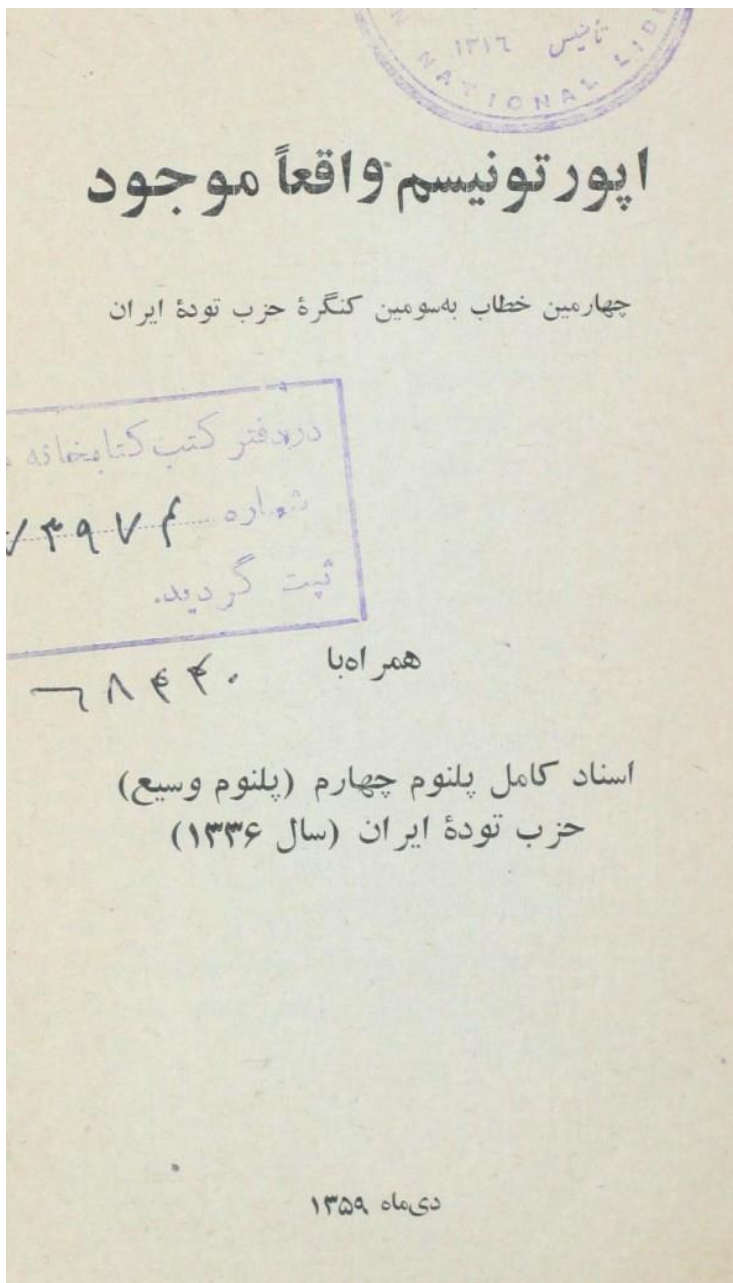 تأسیس ۱۳۱۶
N NATIONAL LIB
اپورتونیسم واقعاً موجود
چهارمین خطاب به‌سومین کنگرهٔ حزب تودهٔ ایران
در دفتر کتب کتابخانه
شماره
ثبت گردید.
همراه‌با
۶۸۴۴۰
اسناد کامل پلنوم چهارم (پلنوم وسیع)
حزب تودهٔ ایران (سال ۱۳۳۶)
دی‌ماه ۱۳۵۹